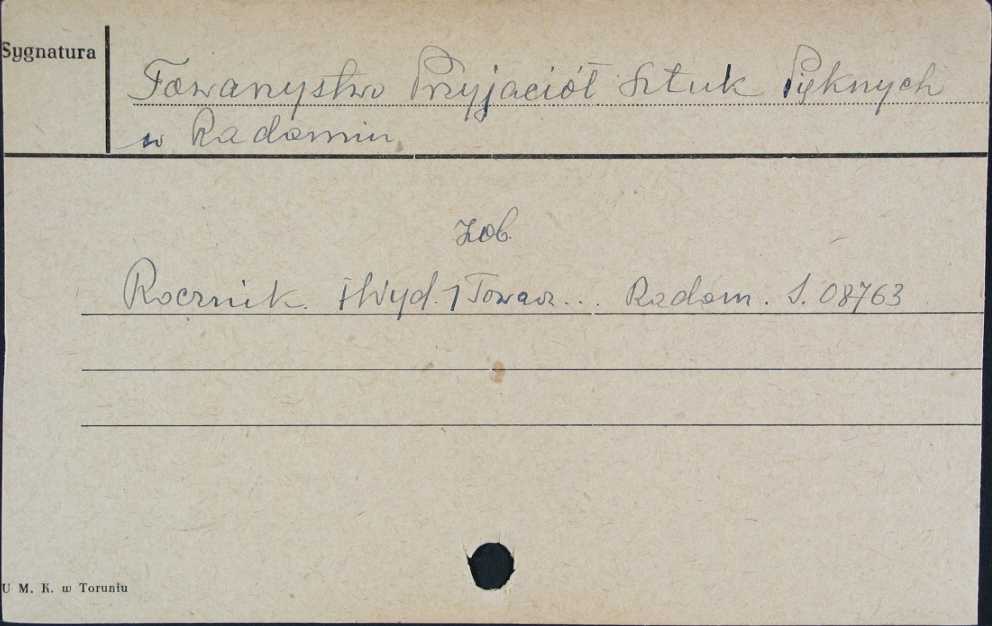 Sygnatura
Towarzystwo Przyjaciół Sztuk Pięknych
w Radomiu
Zob.
Rocznik. [Wyd.] Towarz... Radom. S. 08763
U M. K. w Toruniu